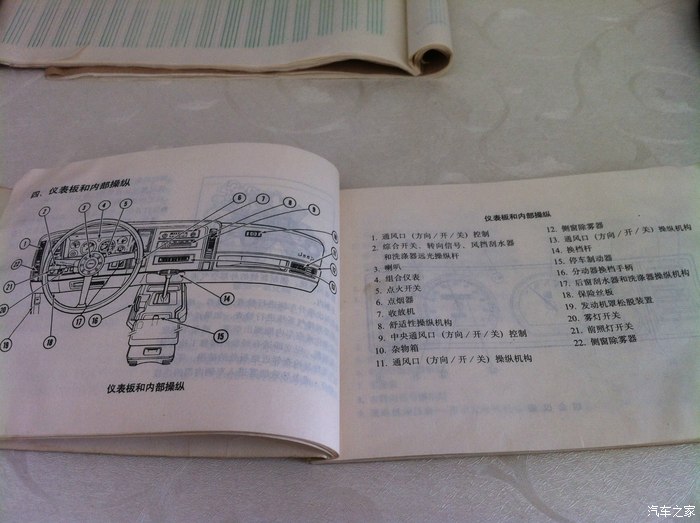 四、仪表板和内部操纵
1
2
3
4
5
6
7
8
9
14
15
16
17
18
19
20
21
Jeep
仪表板和内部操纵
仪表板和内部操纵
1. 通风口(方向/开/关)控制
2. 综合开关、转向信号、风挡刮水器
和洗涤器远光操纵杆
3. 喇叭
4. 组合仪表
5. 点火开关
6. 点烟器
7. 收放机
8. 舒适性操纵机构
9. 中央通风口(方向/开/关)控制
10. 杂物箱
11. 通风口(方向/开/关)操纵机构
12. 侧窗除雾器
13. 通风口(方向/开/关)操纵机构
14. 换档杆
15. 停车制动器
16. 分动器换档手柄
17. 后窗刮水器和洗涤器操纵机构
18. 保险丝板
19. 发动机罩松脱装置
20. 雾灯开关
21. 前照灯开关
22. 侧窗除雾器
汽车之家